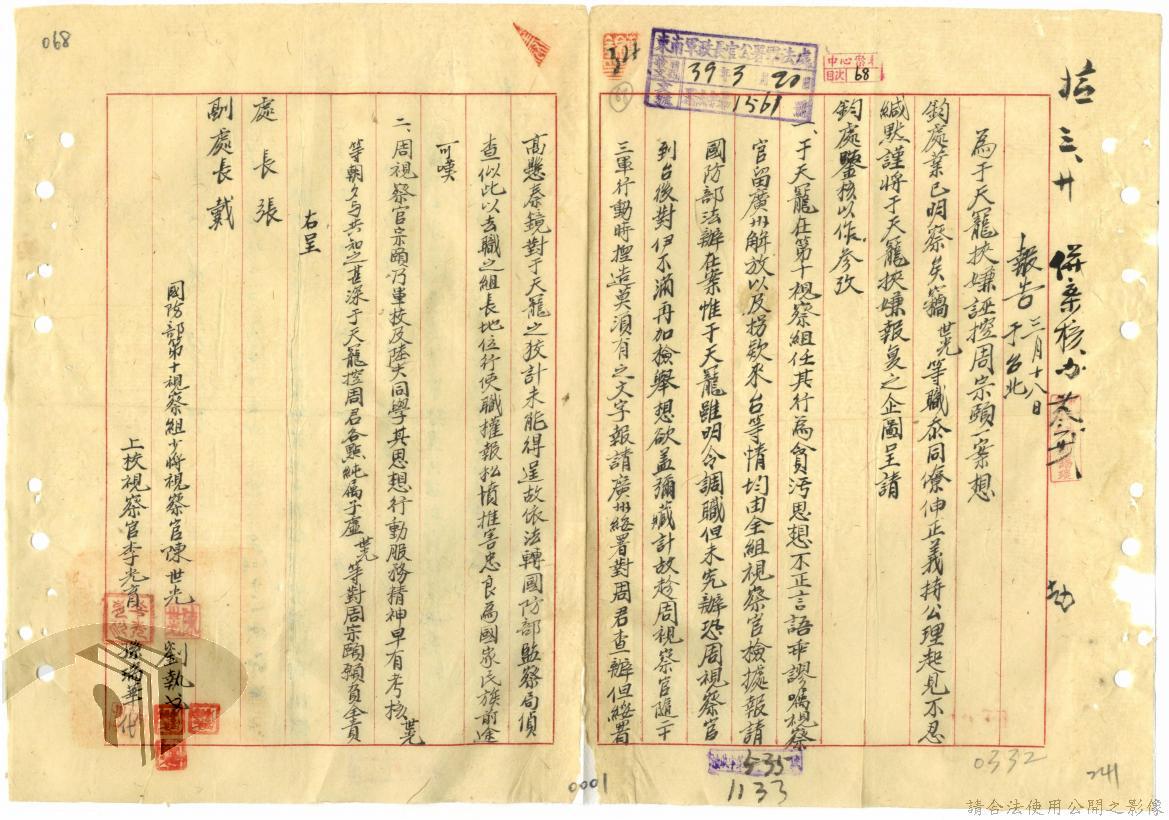 068
東南軍政長官公署軍法處
39年3月20日
1561
68
報告 三月十八日
于台北
為于天寵挾嫌誣控周宗頤一案想
鈞處業已明察矣竊世光等職忝同僚伸正義持公理起見不忍
緘默謹將于天寵挾嫌報復之企圖呈請
鈞處鑒核以作參攷
一、于天寵在第十視察組任其行為貪污思想不正言語乖謬囑視察
官留廣州解放以及拐款來台等情均由全組視察官檢據報請
國防部法辦在案惟于天寵雖明令調職但未先辦恐周視察官
到台後對伊不滿再加檢舉想欲蓋彌藏計故趁周視察官隨三
三軍行動時捏造莫須有之文字報請廣州綏署對周君查辦但綏署
高懸秦鏡對于天寵之狡計未能得逞故依法轉國防部監察局偵
查似此以去職之組長地位行使職權報私憤摧害忠良為國家民族前途
可嘆
二、周視察官宗頤乃軍校及陸大同學其思想行動服務精神早有考核世光
等朝夕與共知之甚深于天寵控周君各點純屬子虛世光等對周宗頤願負全責
右呈
處長張
副處長戴
國防部第十視察組少將視察官陳世光
劉執戈
上校視察官李光育
孫瑞華代
535
1133
0001
0332
241
請合法使用公開之影像